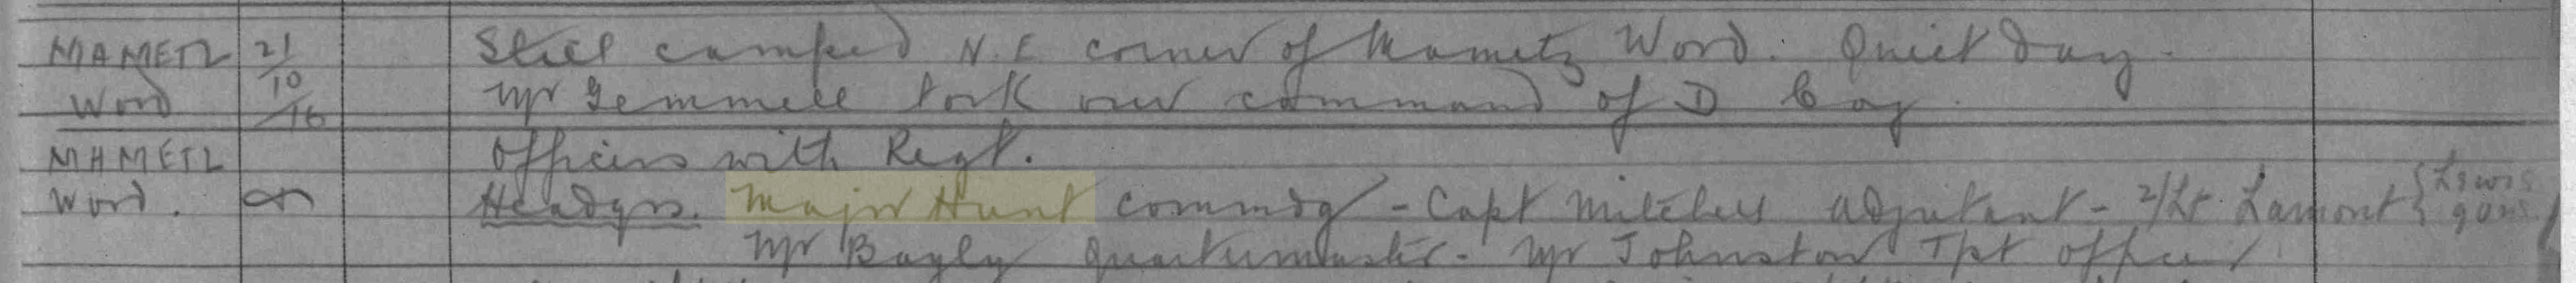 MAMETZ 21/10/16 Still camped N.E corner of Mametz Wood. Quiet day.
Wood Mr Gemmell took over command of D Coy.
MAMETZ Officers with Regt.
Wood. Headqrs. Major Hunt Commdg - Capt Mitchell adjutant - 2/Lt. Lamont { Lewis guns
Mr Bayly Quartermaster - Mr Johnston Tpt officer